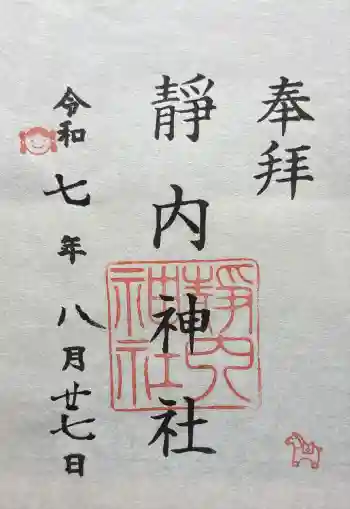 奉拝
靜内神社
靜内
神社
令和七年八月廿七日